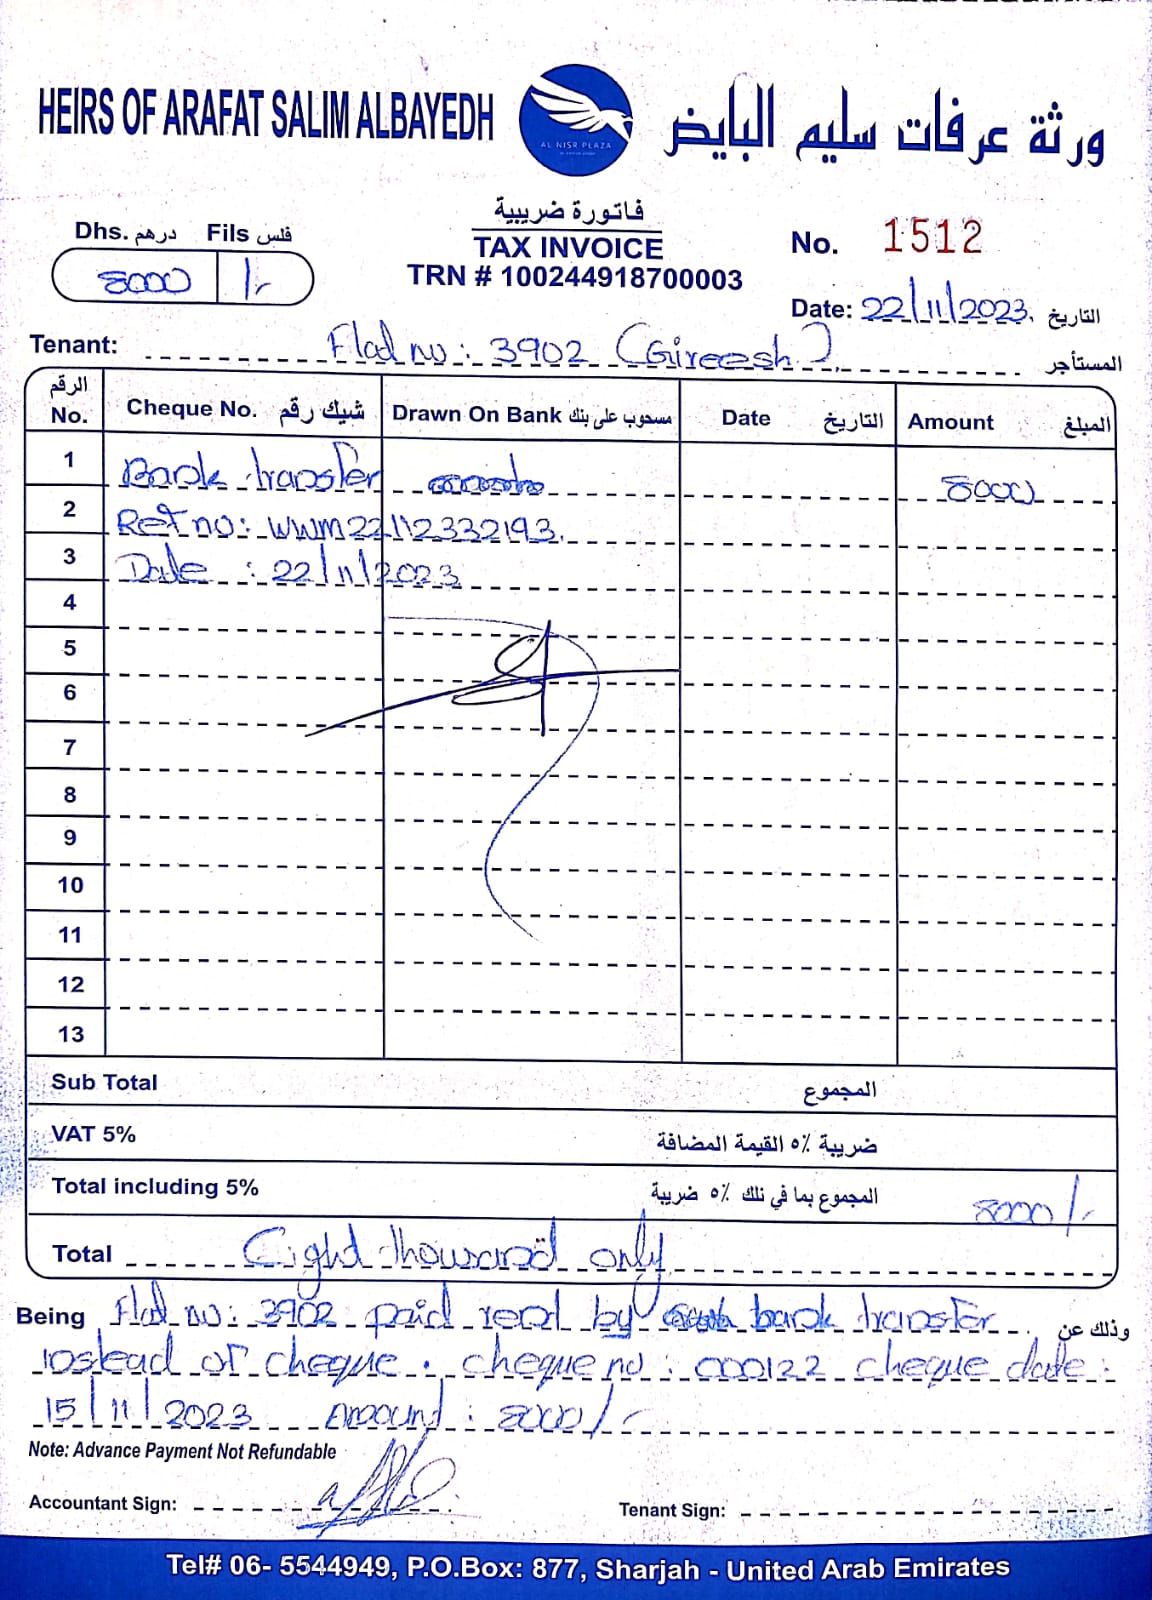 HEIRS OF ARAFAT SALIM ALBAYEDH
AL NISR PLAZA
ورثة عرفات سليم البايض
فاتورة ضريبية
TAX INVOICE
TRN # 100244918700003
Dhs. درهم Fils فلس
8000 /-
No. 1512
Date: 22/11/2023. التاريخ
Tenant: Flat no: 3902 (Gireesh) المستأجر
الرقم No. Cheque No. شيك رقم Drawn On Bank مسحوب على بنك Date التاريخ Amount المبلغ
1 Bank transfer 8000
2 Ref no: WWM22112332193.
3 Date : 22/11/2023
4
5
6
7
8
9
10
11
12
13
Sub Total المجموع
VAT 5% ضريبة ٥٪ القيمة المضافة
Total including 5% المجموع بما في تلك ٥٪ ضريبة 8000/-
Total Eight thousand only
Being Flat no: 3902 paid rent by bank transfer وذلك عن
instead of cheque. cheque no: 000122 cheque date:
15/11/2023 Amount: 8000/-
Note: Advance Payment Not Refundable
Accountant Sign:
Tenant Sign:
Tel# 06- 5544949, P.O.Box: 877, Sharjah - United Arab Emirates